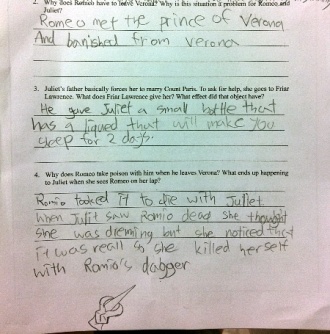 2. Why does Romeo have to leave Verona? Why is this situation a problem for Romeo and
Juliet?
Romeo met the prince of Verona
And banished from verona
3. Juliet's father basically forces her to marry Count Paris. To ask for help, she goes to Friar
Lawrence. What does Friar Lawrence give her? What effect did that object have?
He gave Juliet a small bottle that
has a liqued that will make you
sleep for 2 days.
4. Why does Romeo take poison with him when he leaves Verona? What ends up happening
to Juliet when she sees Romeo on her lap?
Romio tooked it to die with Juliet.
When Julit saw Romio dead she thought
she was dreming but she noticed that
it was reall so she killed herself
with Romio's dagger